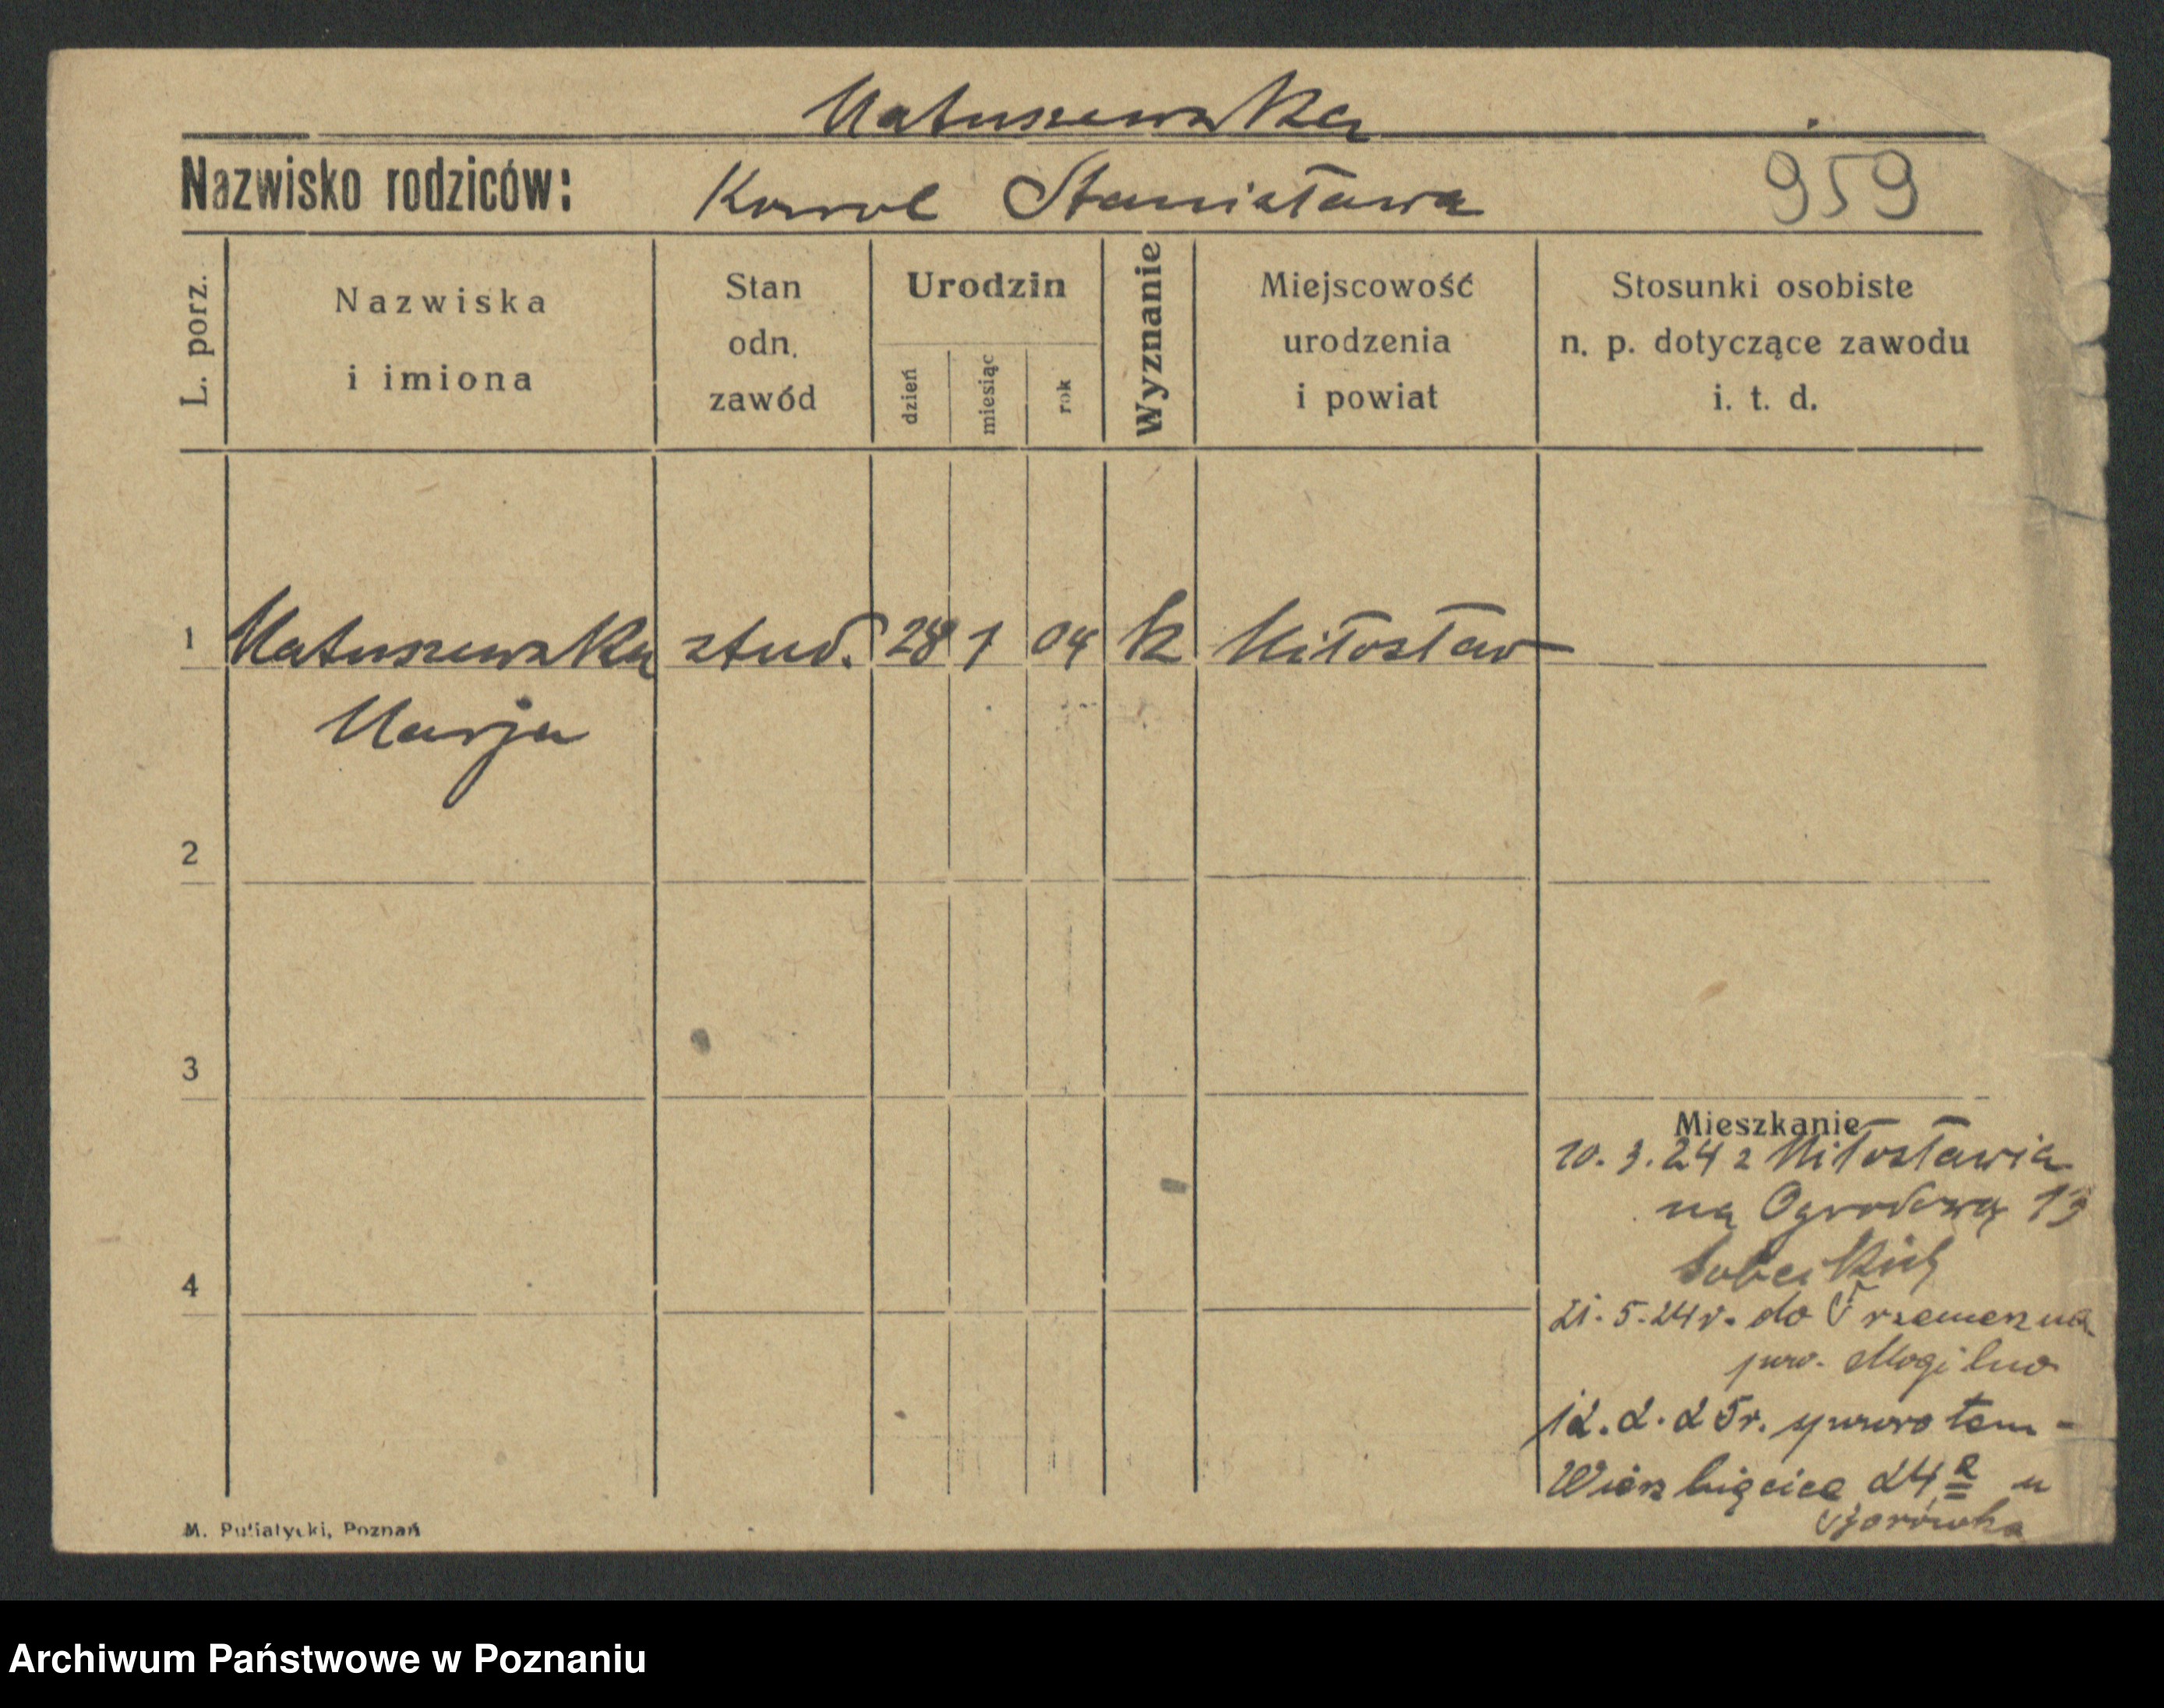 Matuszewska
Nazwisko rodziców: Stanisława 959
L. porz.
Nazwiska
i imiona
Stan
odn.
zawód
Urodzin
dzień
miesiąc
rok
Wyznanie
Miejscowość
urodzenia
i powiat
Stosunki osobiste
n. p. dotyczące zawodu
i. t. d.
1 Matuszewska stud. 28 1 04 k Miłosław
Marja
2
3
Mieszkanie
10. 3. 24 z Miłosławia
na Ogrodową 13
Sobeckich
4
21. 5. 24 r. do Trzemeszna
pow. Mogilno
12. 2. 25 r. spowrotem -
Wierzbięcice 24 a u
M. Putiatycki, Poznań
Archiwum Państwowe w Poznaniu